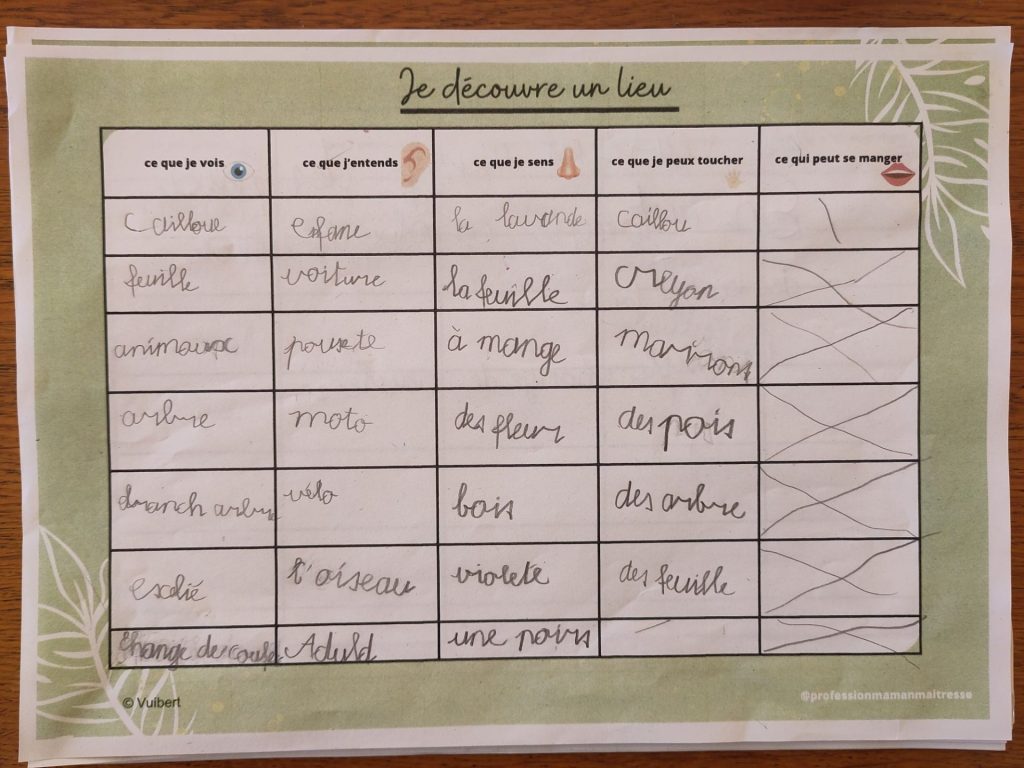 Je découvre un lieu
ce que je vois ce que j'entends ce que je sens ce que je peux toucher ce qui peut se manger
Caillou enfane la lavande caillou
feuille voiture la feuille creyon
animaux pousete à mange marrons
arbre moto des fleurs des pois
branch arbre vélo bois des arbre
escalié l'oiseau violete des feuille
change de coup Aduld une poirs
© Vuibert @professionmamanmaitresse